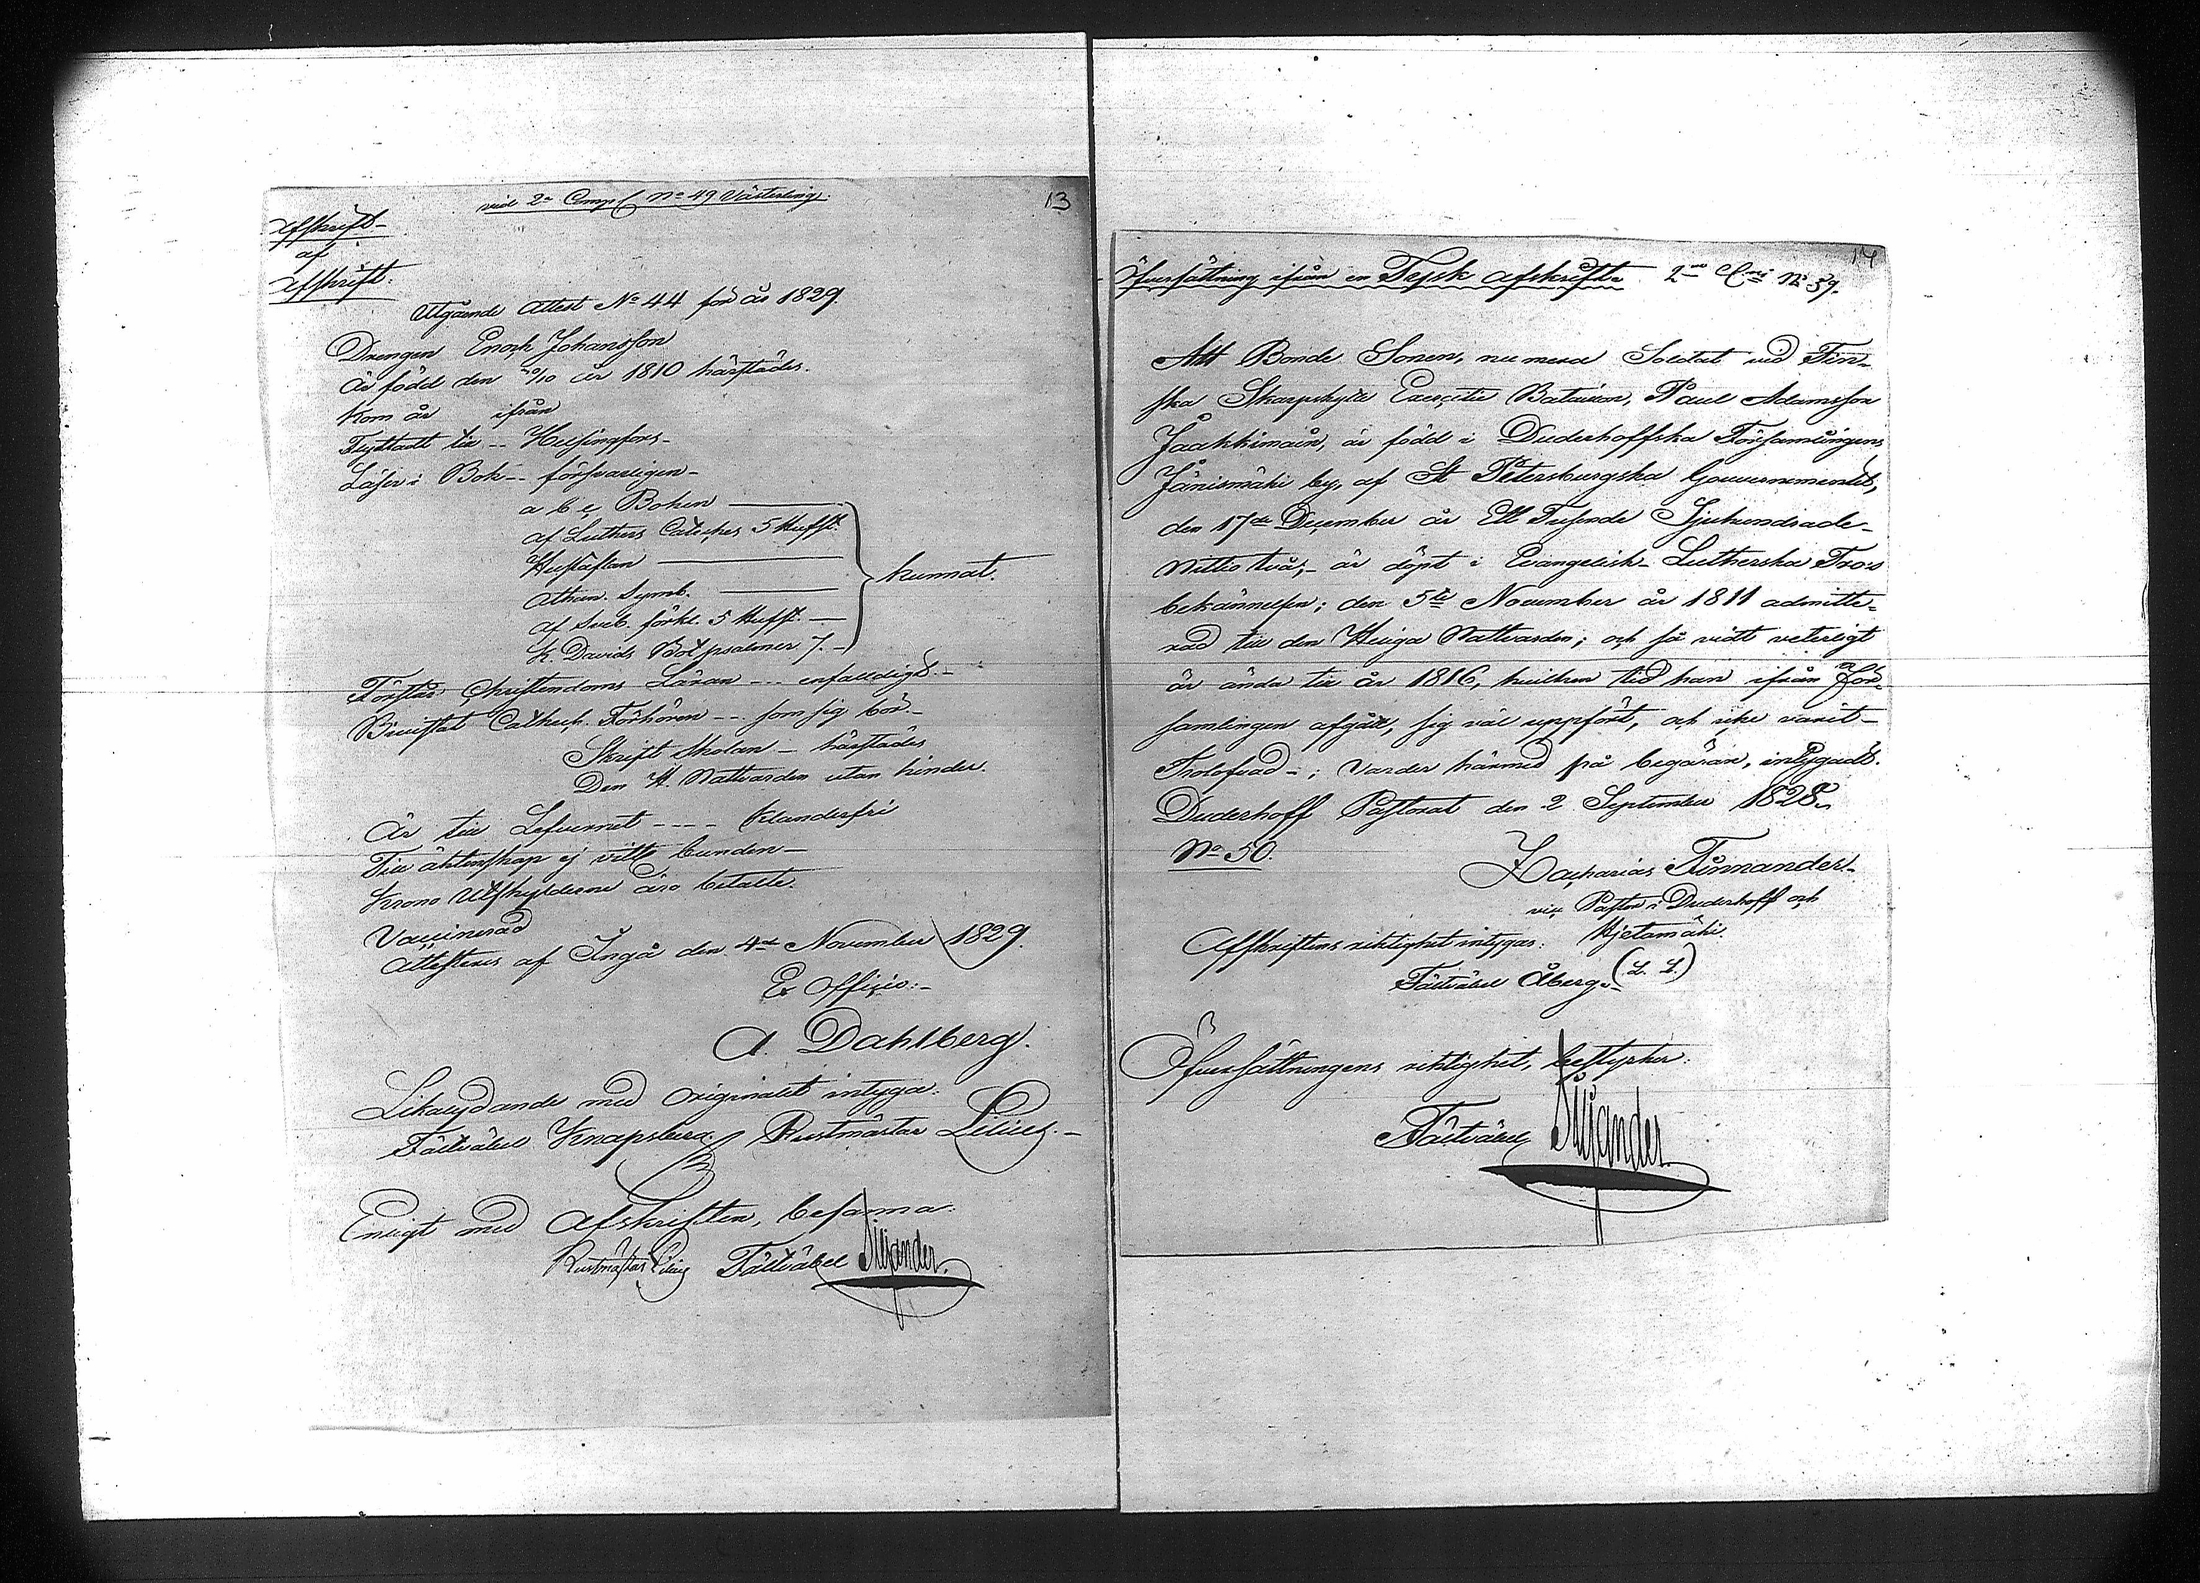 13
vid 2a Comp. No 49 Västerling.
Afskrift
af
Afskrift.
Utgående Attest No 44 för år 1829.
Drengen Enoch Johansson
Är född den 20/10 år 1810 härstädes.
Kom år ifrån
Flyttadt till -- Helsingfors-
Läser i Bok -- försvarligen-
a b c Boken
af Luthers Cateches 5 Hufst.
Hustaflan
Athan. Symb.
af Sveb. förkl. 5 Hufst.
K. Davids Botpsalmer 7.-
kunnat.
Förstår Christendoms Läran --- enfalldigt.-
Bivistat Cathech. Förhören -- som sig bör.-
Skrift Skolan - härstädes
Den H. Nattvarden utan hinder.
Är till Lefvernet ---- Klanderfri
Till äktenskap ej vitt. bunden-
Krono Utskylderne äro betalte.
Vaccinerad
Attesteras af Ingå den 4de November 1829.
Ex Officio:-
A. Dahlberg.
Likalydande med Originalet intyga:
Fältväbel Knapsberg. Rustmästar Lilius.-
Enligt med Afskriften, besanna:
Rustmästar Lilius Fältväbel Siljander.
14
Öfversättning ifrån en Tysk afskrift. 2ne Cni No 59.
Att Bonde Sonen, nu mera Soldat vid Fin-
ska Skarpskytte Exercitie Batailon, Paul Adamsson
Jaakkimain, är född i Duderhoffska Församlingens
Jänismäki by, af St Petersburgska Gouvernementet,
den 17de December år Ett Tusende Sjuhundrade-
Nittio två;- är döpt i Evangelisk- Lutherska Tros
bekännelsen; den 5te November år 1811 admitte-
rad till den Heliga Nattvarden; och så vidt veterligt
är ända till år 1816, hvilken tid han ifrån För-
samlingen afgått, sig väl uppfört, och icke varit-
Trolofvad-; Varder härmed på begäran, intygadt.
Duderhoff Pastorat den 2 September 1828.
No 50.
Zacharias Tönnander-
vic. Pastor i Duderhoff och
Hjetamäki.
Afskriftens riktighet intygas:
Fältväbel Åberg. (L. S.)
Öfversättningens riktighet, bestyrker:
Fältväbel Siljander.